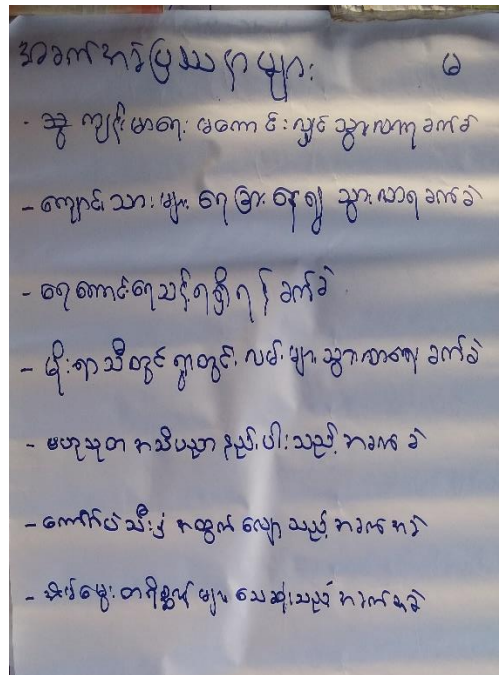 အခက်အခဲပြဿနာများ ဖ
- ကျန်းမာရေး မကောင်းလျှင် သွားလာရခက်ခဲ
- ကျောင်းသားများ ရေခြားနေ၍ သွားလာရခက်ခဲ
- ရေကောင်းရေသန့်ရရှိရန် ခက်ခဲ
- မိုးရာသီတွင် ရွာတွင်း လမ်းများ သွားလာရေး ခက်ခဲ
- ဗဟုသုတ အသိပညာ နည်းပါးသည့် အခက် ခဲ
- ကော်ဖီသီးနှံ အထွက် လျော့သည့် အခက်အခဲ
- အိမ်မွေးတိရိစ္ဆာန် များ သေဆုံးသည့် အခက်အခဲ